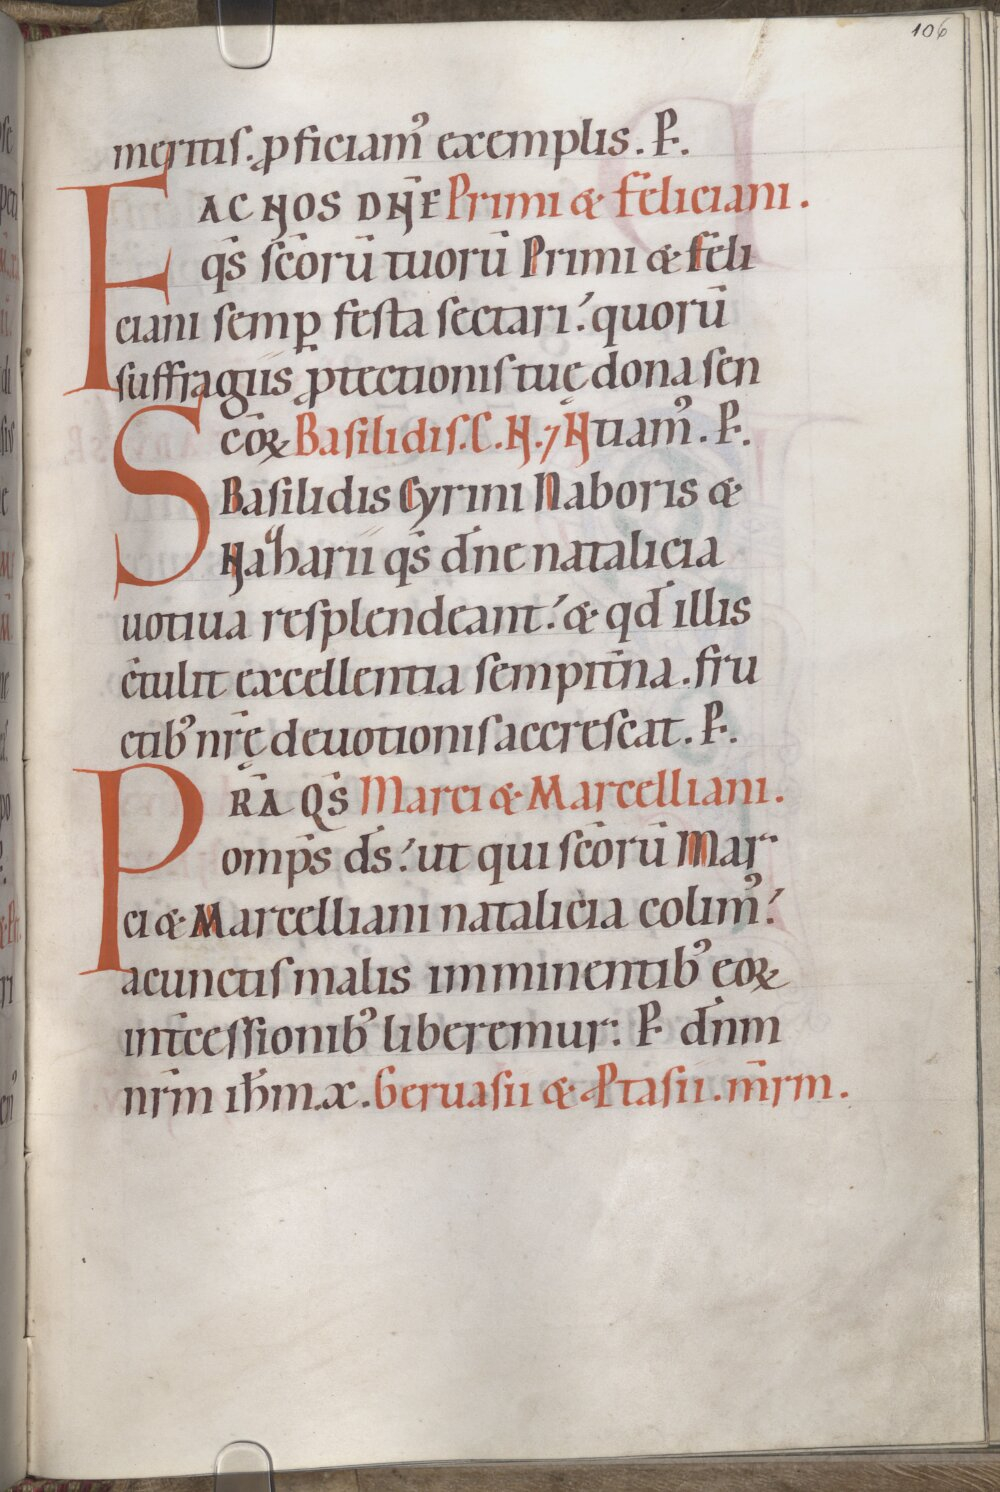 106
meritis. ꝓficiam᾽ exemplis. P̵.
FAC NOS DN̄E Primi & feliciani.
qs̄ sc̄orū tuorū Primi & feli
ciani semꝑ festa sectari؛ quorū
suffragiis ꝓtectionis tuę dona sen
SCO̅Ꝝ Basilidis. C. N. ⁊ N tiam᾽. P̵.
Basilidis Cyrini Naboris &
Nazharii qs̄ dn̄e natalicia
uotiua resplendeant؛ & qd̄ illis
c̄tulit excellentia sempit̄na. fru
ctib᾽ nr̄ę deuotionis accrescat. P̵.
PRĀ QS̄ Marci & Marcelliani.
omps̄ ds̄؛ ut qui sc̄orū Mar
ci & Marcelliani natalicia colim᾽؛
acunctis malis imminentib᾽ eoꝝ
int̄cessionib᾽ liberemur: P̵ dn̄m
nr̄m ih̄m. x. Geruasii & Ptasii. mr̄m.